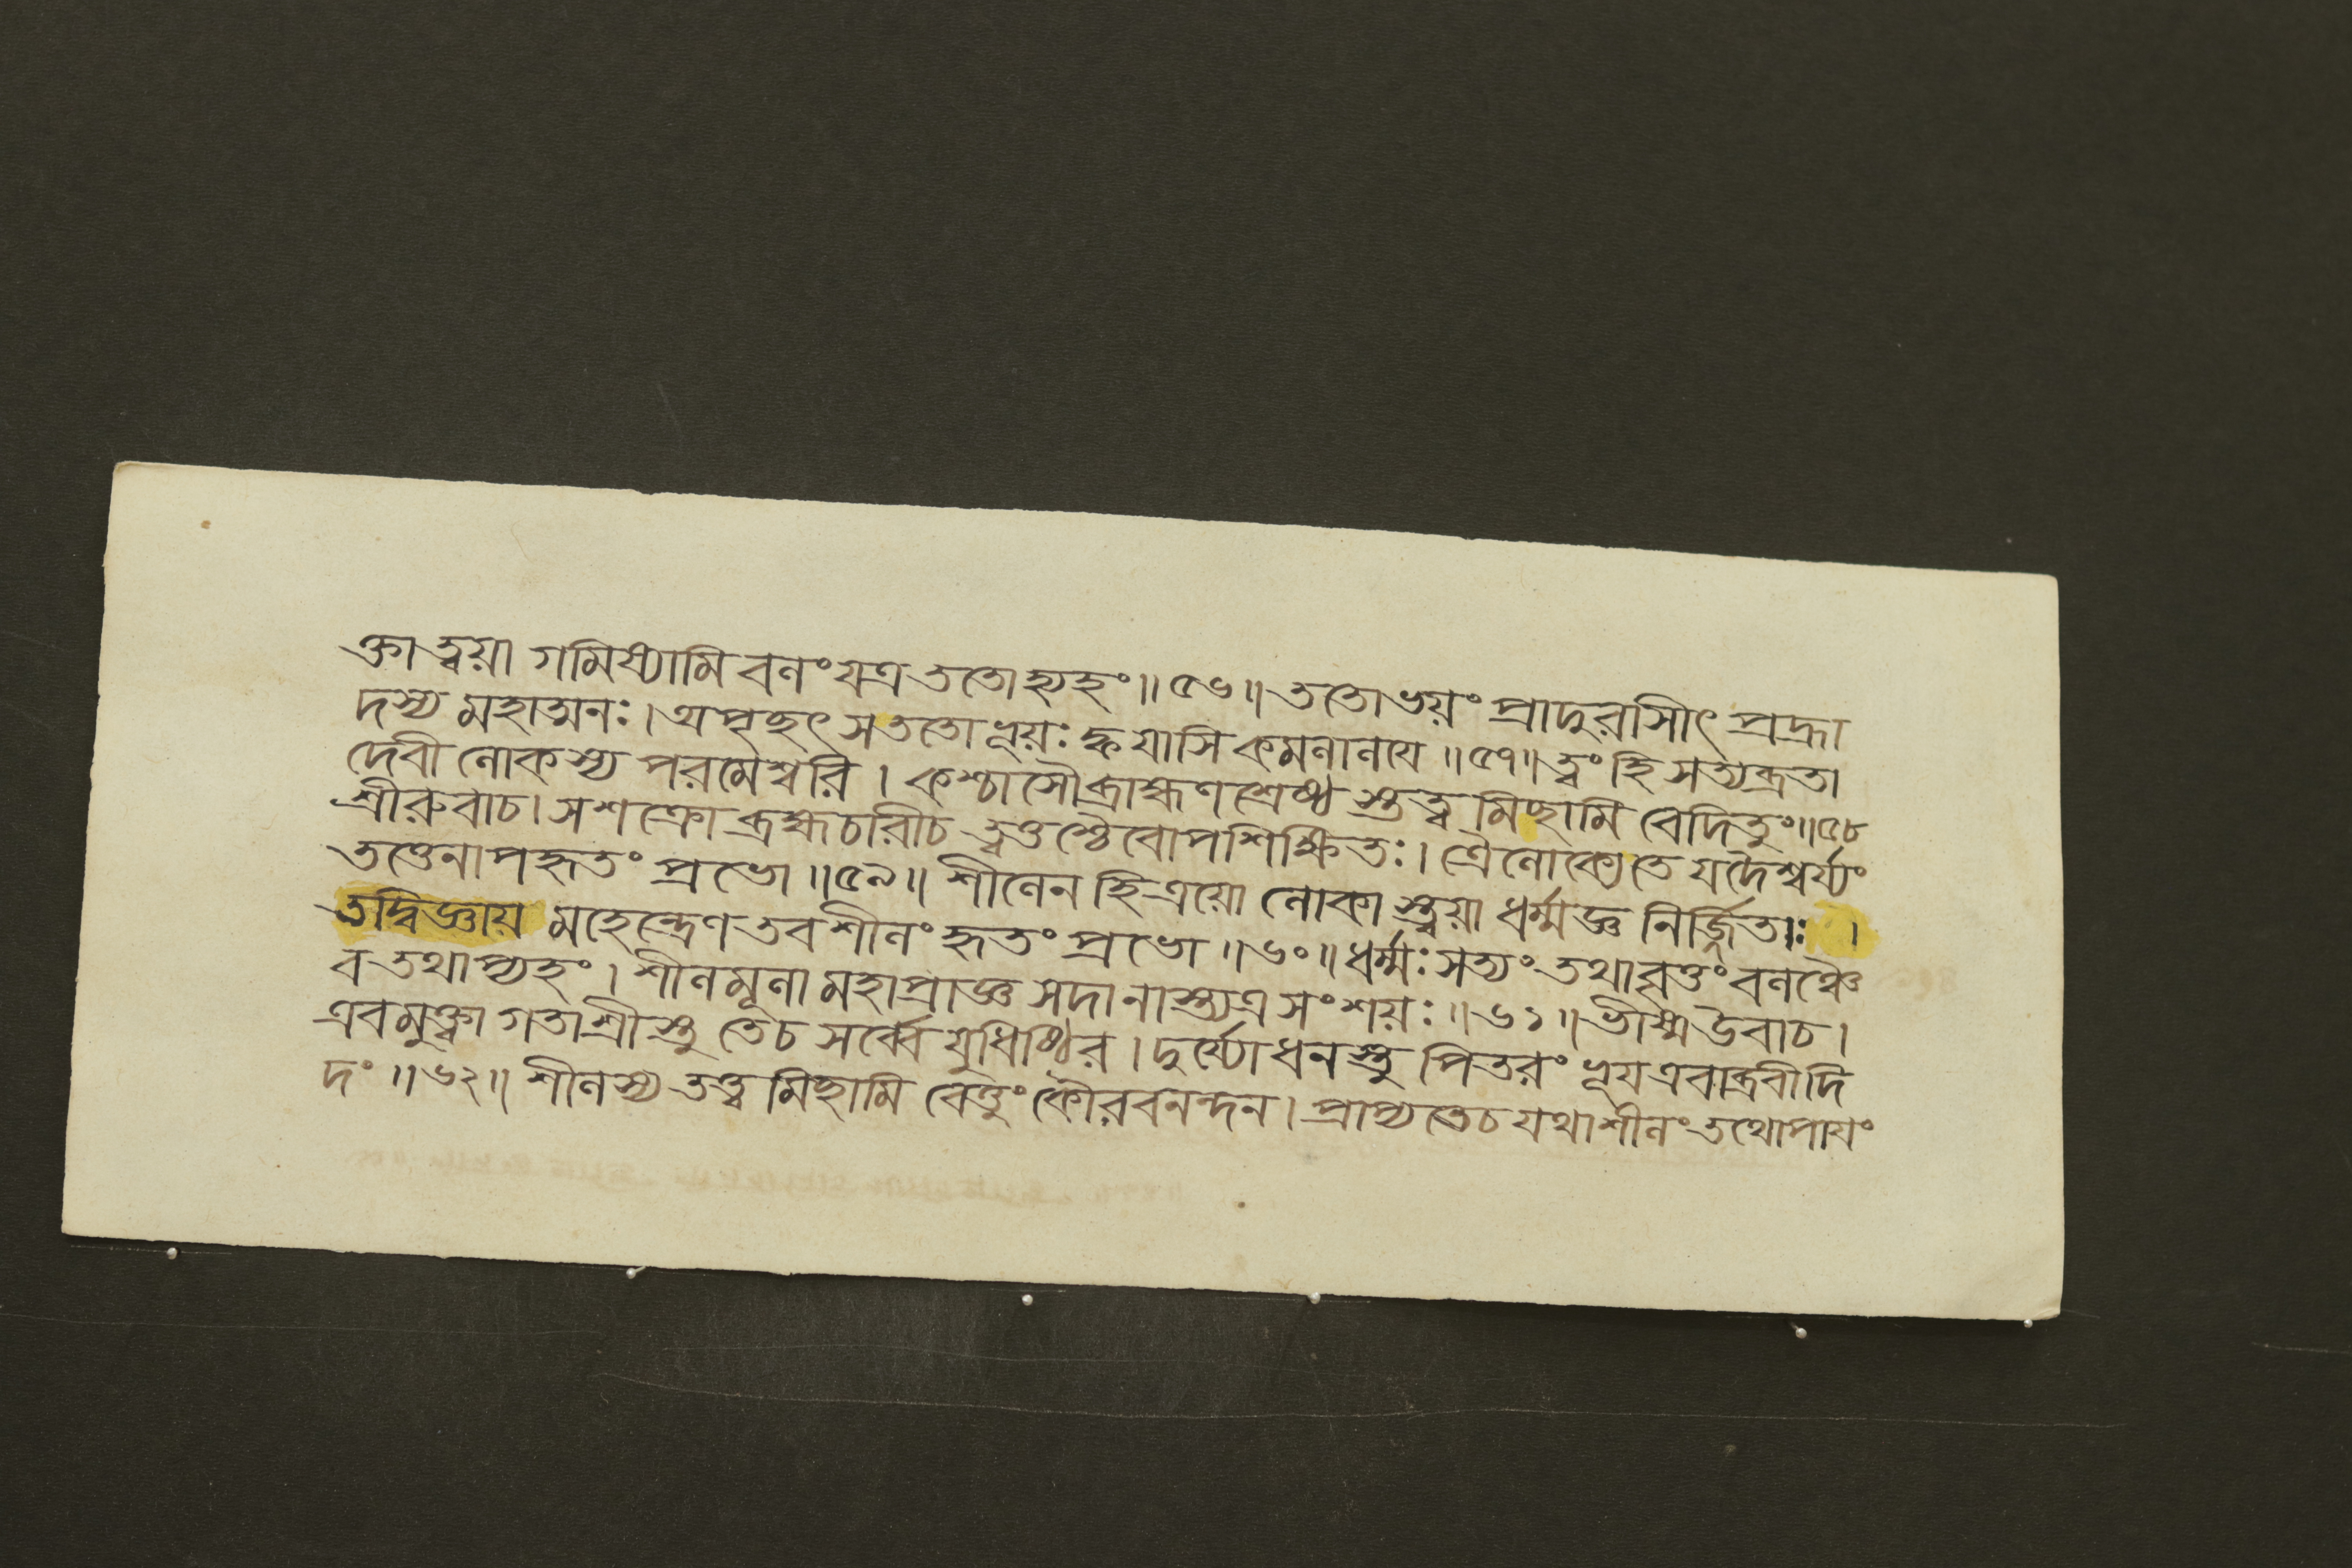 ক্তা ত্বয়া গমিষ্যামি বলং যত্র ততোহ্যহং॥৫৬॥ততোভয়ং প্রাদুরাসীৎ প্রহ্রা
দস্য মহাত্মনঃ।অপৃছৎ সততোভূয়ঃ ক্ব যাসি কমলালয়ে॥৫৭॥ত্বং হি সত্যব্রতা
দেবী লোকস্য পরমেশ্বরি। কশ্চাসৌব্রাহ্মণশ্রেষ্ঠ স্তত্ত্ব মিছামি বেদিতুং॥৫৮
শ্রীরুবাচ।সশক্রো ব্রহ্মচারীচ ত্বত্তশ্চৈবোপশিক্ষিতঃ। ত্রৈলোক্যে তে যদৈশ্বর্য্যং
তত্তেনাপহৃতং প্রভো॥৫৯॥ শীলেন হিত্রয়ো লোকা স্ত্বয়া ধর্ম্মজ্ঞ নির্জ্জিতাঃ।
তদ্বিজ্ঞায় মহেন্দ্রেণ তব শীলং হৃতং প্রভো॥৬০॥ধর্ম্মঃ সত্যং তথাবৃত্তং বলঞ্চৈ
ব তথাপ্যহং। শীলমূলা মহাপ্রাজ্ঞ সদা নাস্ত্যত্র সংশয়ঃ॥৬১॥ভীষ্মউবাচ।
এবমুক্ত্বা গতাশ্রীস্তু তেচ সর্ব্বে যুধিষ্ঠির। দুর্য্যোধনস্তু পিতরং ভূয় এবাব্রবীদি
দং॥৬২॥ শীলস্য তত্ত্ব মিছামি বেত্তুং কৌরবনন্দন। প্রাপ্যতেচ যথাশীলং তথোপায়ং